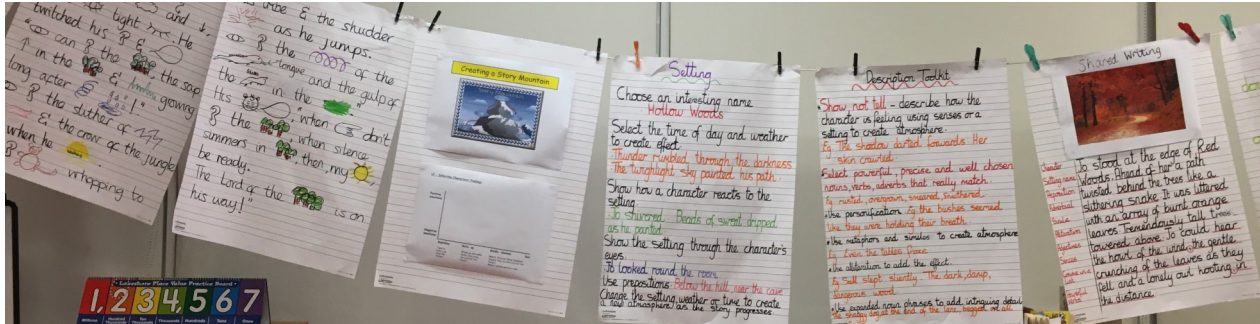 twitched his
tight
He
can
the
the sap
in the
growing
long after
the slither of
the crow of the jungle
when he
whopping to
the shudder
as he jumps.
the
of the
-tongue and the gulp of
the
in the
His
when
don't
the
when silence
simmers in
then, my
be ready.
The Lord of the
is on
his way!"
Creating a Story Mountain
Setting
Choose an interesting name
Hollow Woods
Select the time of day and weather
to create effect.
Thunder rumbled through the darkness
The twighlight sky painted his path.
Show how a character reacts to the
setting.
Jo shivered. Beads of sweat dripped
as he panted.
Show the setting through the character's
eyes.
Jo looked round the room.
Use prepositions: Below the hill, near the cave
Change the setting, weather or time to create
a new atmosphere as the story progresses.
Description Toolkit
Show, not tell - describe how the
character is feeling using senses or a
setting to create atmosphere.
Eg The shadow darted forwards. Her
skin crawled.
Select powerful, precise and well chosen
nouns, verbs, adverbs that really match.
Eg rusted, overgrown, smeared, smothered
Use personification Eg the bushes seemed
like they were holding their breath.
Use metaphors and similes to create atmosphere
Eg Even the tables froze.
Use alliteration to add the effect.
Eg Salt slept silently. The dark, damp,
dangerous wood.
Use expanded noun phrases to add intriguing detail
Eg The shabby dog at the end of the lane, begged us all
Shared Writing
Character
Setting name
Preposition
Simile
Jo stood at the edge of Red
Woods. Ahead of her a path
twisted behind the trees like a
slithering snake. It was littered
with an array of burnt orange
leaves. Tremendously tall trees
towered above. Jo could hear
the howl of the wind, the gentle
crunching of the leaves as they
fell and a lonely owl hooting in
the distance.
Lakeshore Place Value Practice Board
1,234,567
Millions
Hundred Thousands
Ten Thousands
Thousands
Hundreds
Tens
Ones